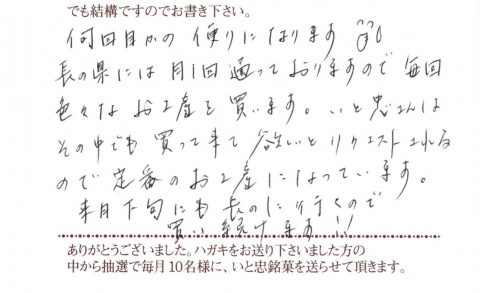 でも結構ですのでお書き下さい。
何回目かの便りになります
長の県には月1回通っておりますので毎回
色々なお土産を買います。いと忠さんは
その中でも買って来て欲しいとリクエストされる
ので定番のお土産になっています。
来月下旬にも長のに行くので
買い続けます!!
ありがとうございました。ハガキをお送り下さいました方の
中から抽選で毎月10名様に、いと忠銘菓を送らせて頂きます。